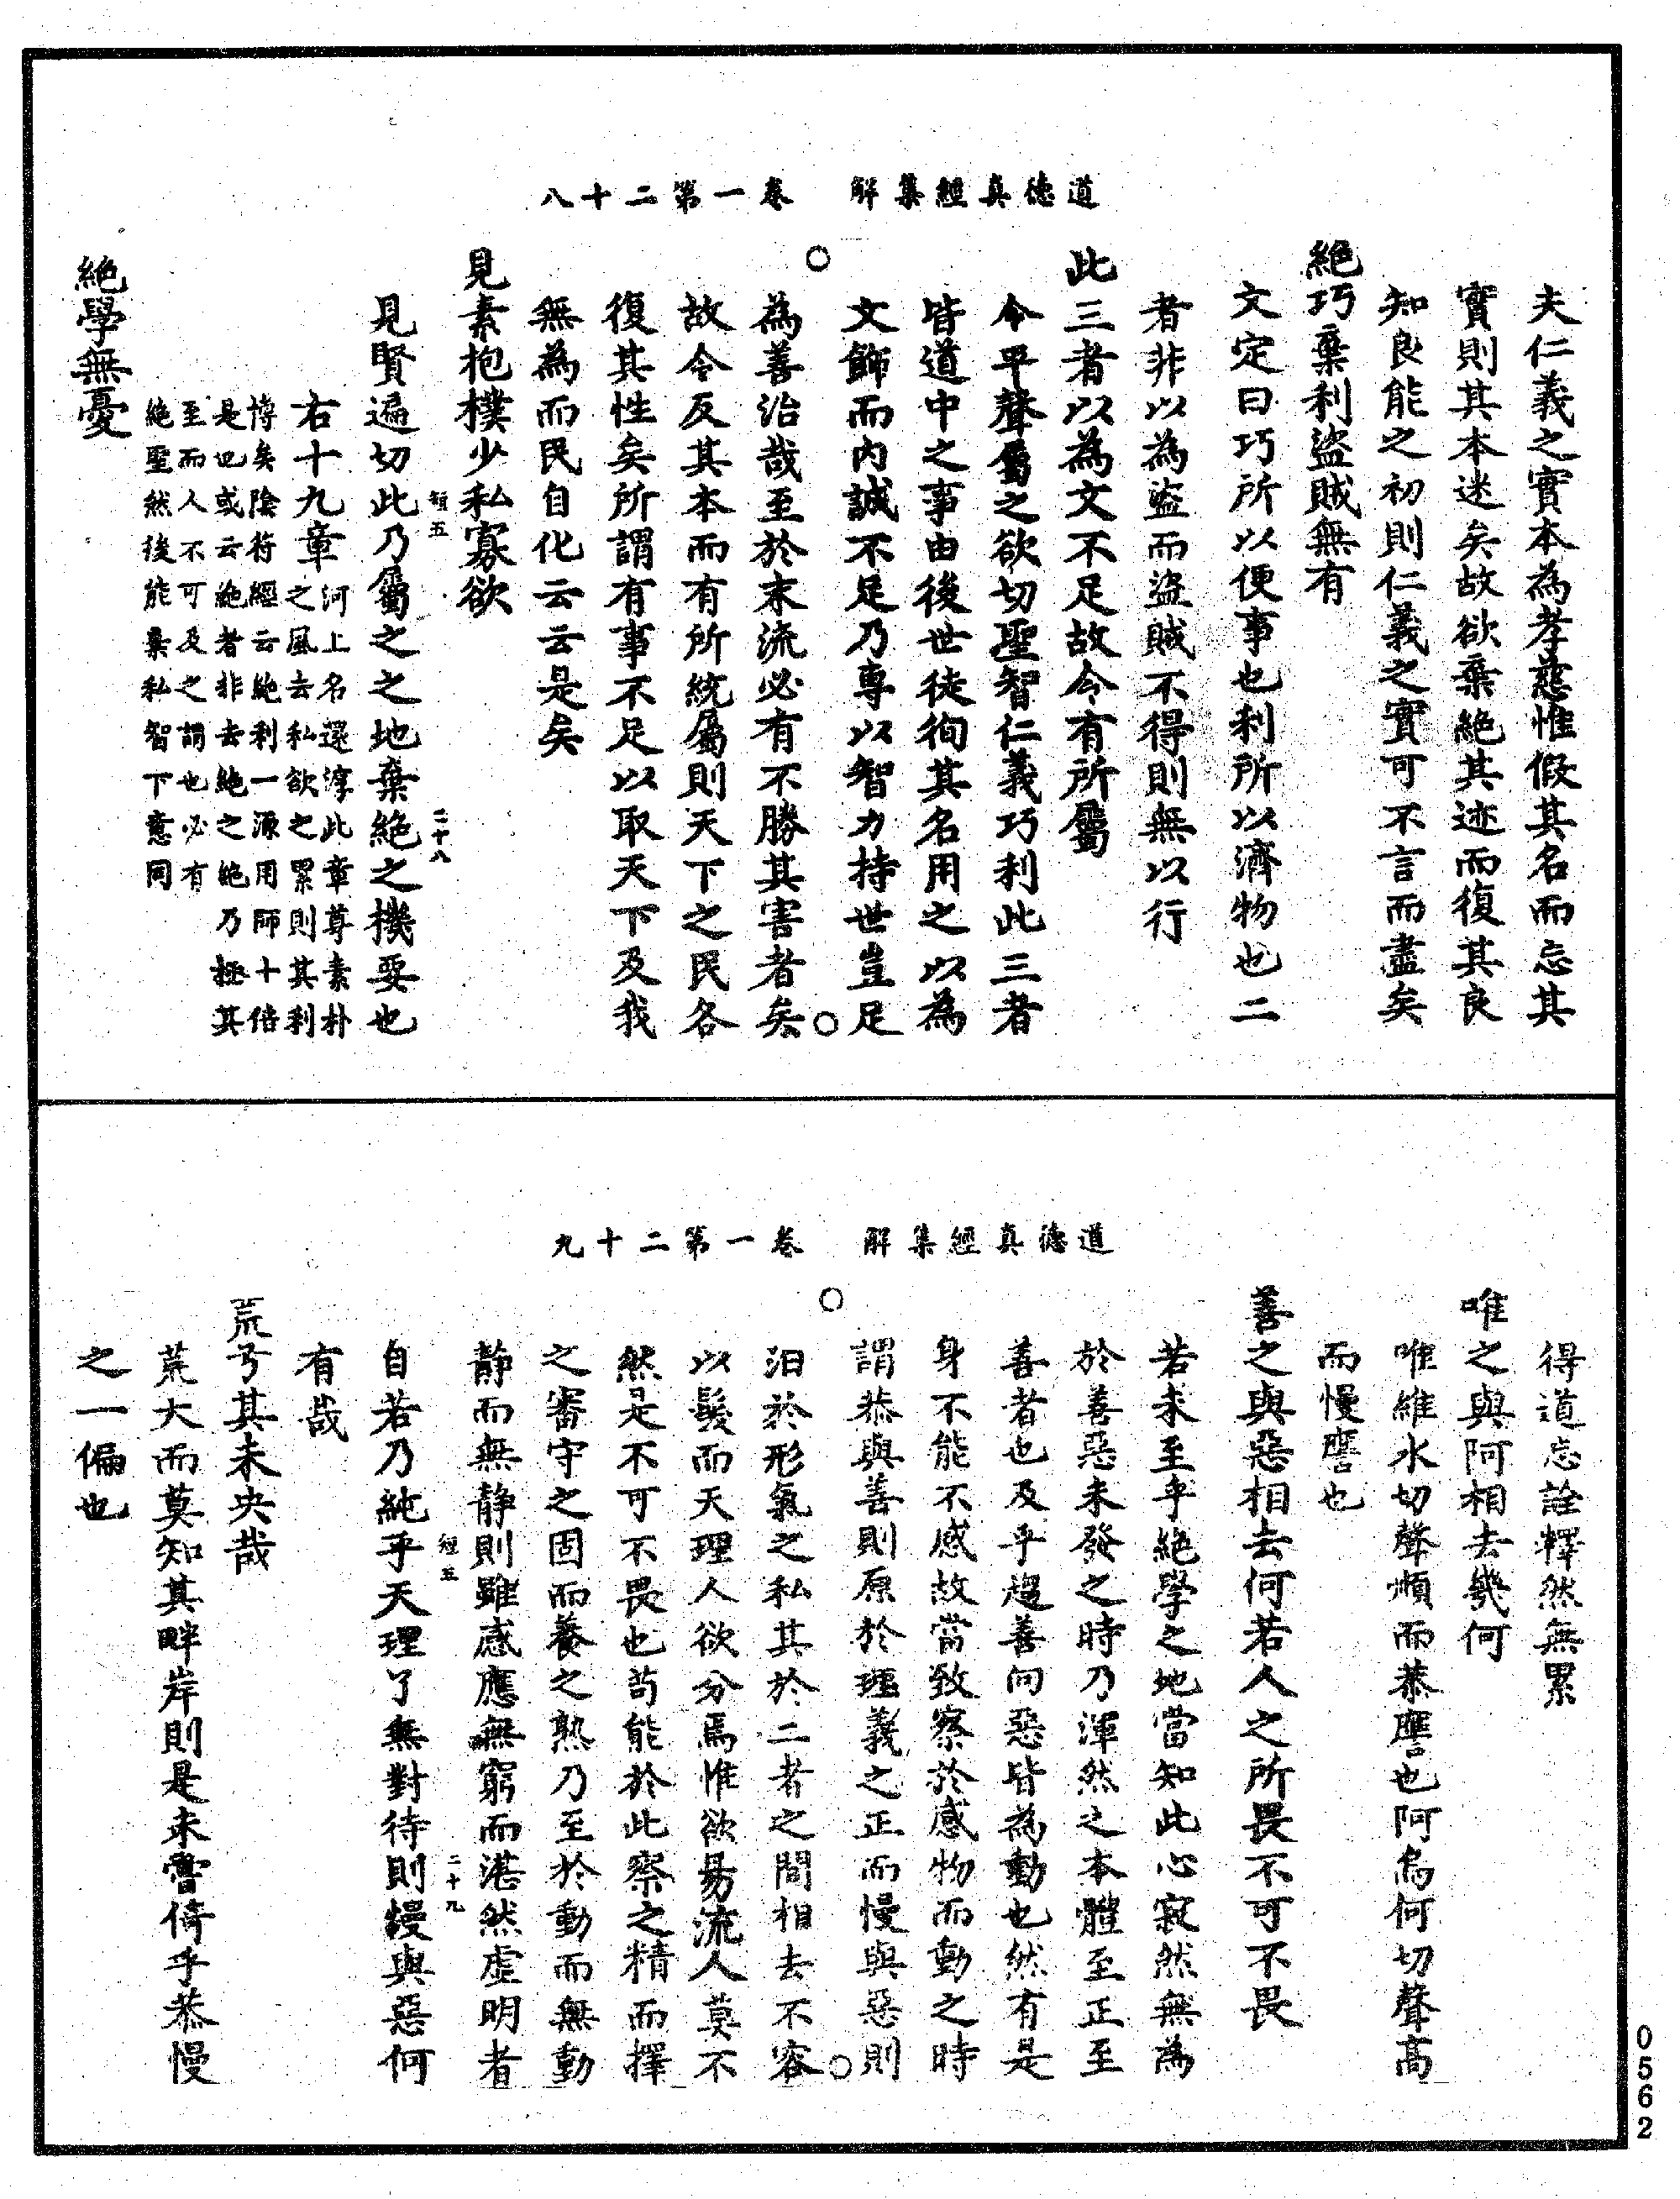 道德真經集解　卷一第二十八
夫仁義之實本為孝慈惟假其名而忘其
實則其本迷矣故欲棄絕其迹而復其良
知良能之初則仁義之實可不言而盡矣
絕巧棄利盜賊無有
文定曰巧所以便事也利所以濟物也二
者非以為盜而盜賊不得則無以行
此三者以為文不足故令有所屬
令平聲屬之欲切聖智仁義巧利此三者
皆道中之事由後世徒徇其名用之以為
文飾而內誠不足乃專以智力持世豈足
為善治哉至於末流必有不勝其害者矣
故令反其本而有所統屬則天下之民各
復其性矣所謂有事不足以取天下及我
無為而民自化云云是矣
見素抱樸少私寡欲
短五　二十八
見賢遍切此乃屬之之地棄絕之機要也
右十九章
河上名還淳此章尊素朴
之風去私欲之累則其利
博矣陰符經云絕利一源用師十倍
是也或云絕者非去絕之絕乃極其
至而人不可及之謂也必有
絕聖然後能棄私智下意同
絕學無憂
道德真經集解　卷一第二十九
得道忘詮釋然無累
唯之與阿相去幾何
唯維水切聲順而恭應也阿烏何切聲高
而慢應也
善之與惡相去何若人之所畏不可不畏
若未至乎絕學之地當知此心寂然無為
於善惡未發之時乃渾然之本體至正至
善者也及乎趨善向惡皆為動也然有是
身不能不感故當致察於感物而動之時
謂恭與善則原於理義之正而慢與惡則
汩於形氣之私其於二者之間相去不容
以髮而天理人欲分焉惟欲易流人莫不
然是不可不畏也苟能於此察之精而擇
之審守之固而養之熟乃至於動而無動
靜而無靜則雖感應無窮而湛然虛明者
短五　二十九
自若乃純乎天理了無對待則慢與惡何
有哉
荒兮其未央哉
荒大而莫知其畔岸則是未嘗倚乎恭慢
之一偏也
0562